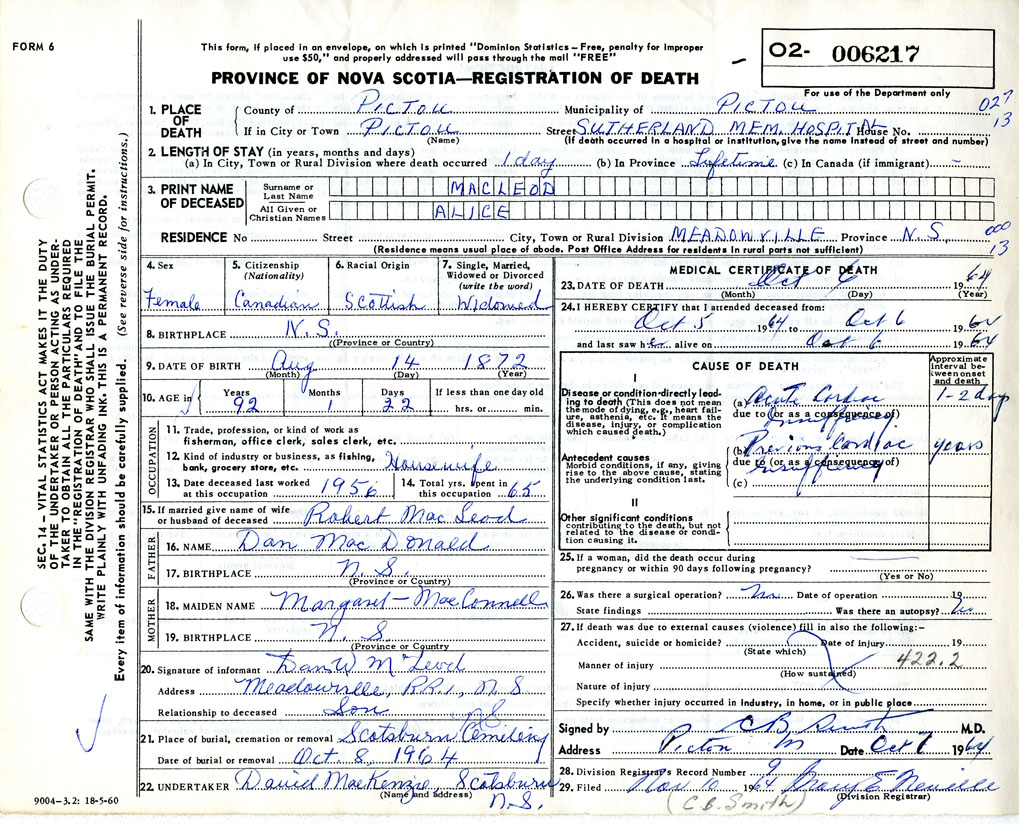 FORM 6
This form, if placed in an envelope, on which is printed "Dominion Statistics – Free, penalty for improper
use $50," and properly addressed will pass through the mail "FREE"
O2- 006217
For use of the Department only
PROVINCE OF NOVA SCOTIA—REGISTRATION OF DEATH
027
13
1. PLACE OF DEATH
County of PICTOU Municipality of PICTOU
If in City or Town PICTOU Street SUTHERLAND MEM. HOSPITAL House No.
(Name) (If death occurred in a hospital or institution, give the name instead of street and number)
2. LENGTH OF STAY (in years, months and days)
(a) In City, Town or Rural Division where death occurred 1 day (b) In Province Lifetime (c) In Canada (if immigrant) -
3. PRINT NAME OF DECEASED
Surname or Last Name MACLEOD
All Given or Christian Names ALICE
RESIDENCE No Street City, Town or Rural Division MEADOWVILLE Province N.S.
000
13
(Residence means usual place of abode. Post Office Address for residents in rural parts not sufficient)
4. Sex Female
5. Citizenship (Nationality) Canadian
6. Racial Origin Scottish
7. Single, Married, Widowed or Divorced (write the word) Widowed
8. BIRTHPLACE N.S.
(Province or Country)
9. DATE OF BIRTH Aug 14 1872
(Month) (Day) (Year)
10. AGE in Years 92 Months 1 Days 22 If less than one day old hrs. or min.
OCCUPATION
11. Trade, profession, or kind of work as fisherman, office clerk, sales clerk, etc.
12. Kind of industry or business, as fishing, bank, grocery store, etc. Housewife
13. Date deceased last worked at this occupation 1956
14. Total yrs. spent in this occupation 65
15. If married give name of wife or husband of deceased Robert MacLeod
FATHER
16. NAME Dan MacDonald
17. BIRTHPLACE N.S.
(Province or Country)
MOTHER
18. MAIDEN NAME Margaret MacConnell
19. BIRTHPLACE N.S.
(Province or Country)
20. Signature of informant Dan W McLeod
Address Meadowville, R.R.1, N S
Relationship to deceased Son
N S
21. Place of burial, cremation or removal Scotsburn Cemetery
Date of burial or removal Oct 8, 1964
22. UNDERTAKER David MacKenzie, Scotsburn
(Name and address) N.S.
9004-3.2: 18-5-60
MEDICAL CERTIFICATE OF DEATH
23. DATE OF DEATH Oct 6 1964
(Month) (Day) (Year)
24. I HEREBY CERTIFY that I attended deceased from:
Oct 5 1964 to Oct 6 1964
and last saw her alive on Oct 6 1964
CAUSE OF DEATH
Approximate interval between onset and death
I
Disease or condition directly leading to death (This does not mean the mode of dying, e.g., heart failure, asthenia, etc. It means the disease, injury, or complication which caused death.)
(a) Acute Cardiac Insufficiency 1-2 days
due to (or as a consequence of)
Antecedent causes
Morbid conditions, if any, giving rise to the above cause, stating the underlying condition last.
(b) Previous Cardiac Insufficiency years
due to (or as a consequence of)
(c)
II
Other significant conditions contributing to the death, but not related to the disease or condition causing it.
25. If a woman, did the death occur during pregnancy or within 90 days following pregnancy?
(Yes or No)
26. Was there a surgical operation? No Date of operation 19
State findings Was there an autopsy? No
27. If death was due to external causes (violence) fill in also the following:–
Accident, suicide or homicide? Date of injury 19
(State which)
Manner of injury 422.2
(How sustained)
Nature of injury
Specify whether injury occurred in industry, in home, or in public place
Signed by C B Smith M.D.
Address Pictou Date Oct 1964
28. Division Registrar's Record Number 9
29. Filed Nov 10 1964 Mary E Neville
(C.B. Smith) (Division Registrar)
SEC. 14 – VITAL STATISTICS ACT MAKES IT THE DUTY
OF THE UNDERTAKER OR PERSON ACTING AS UNDER-
TAKER TO OBTAIN ALL THE PARTICULARS REQUIRED
IN THE "REGISTRATION OF DEATH" AND TO FILE THE
SAME WITH THE DIVISION REGISTRAR WHO SHALL ISSUE THE BURIAL PERMIT.
WRITE PLAINLY WITH UNFADING INK. THIS IS A PERMANENT RECORD.
Every item of information should be carefully supplied. (See reverse side for instructions.)